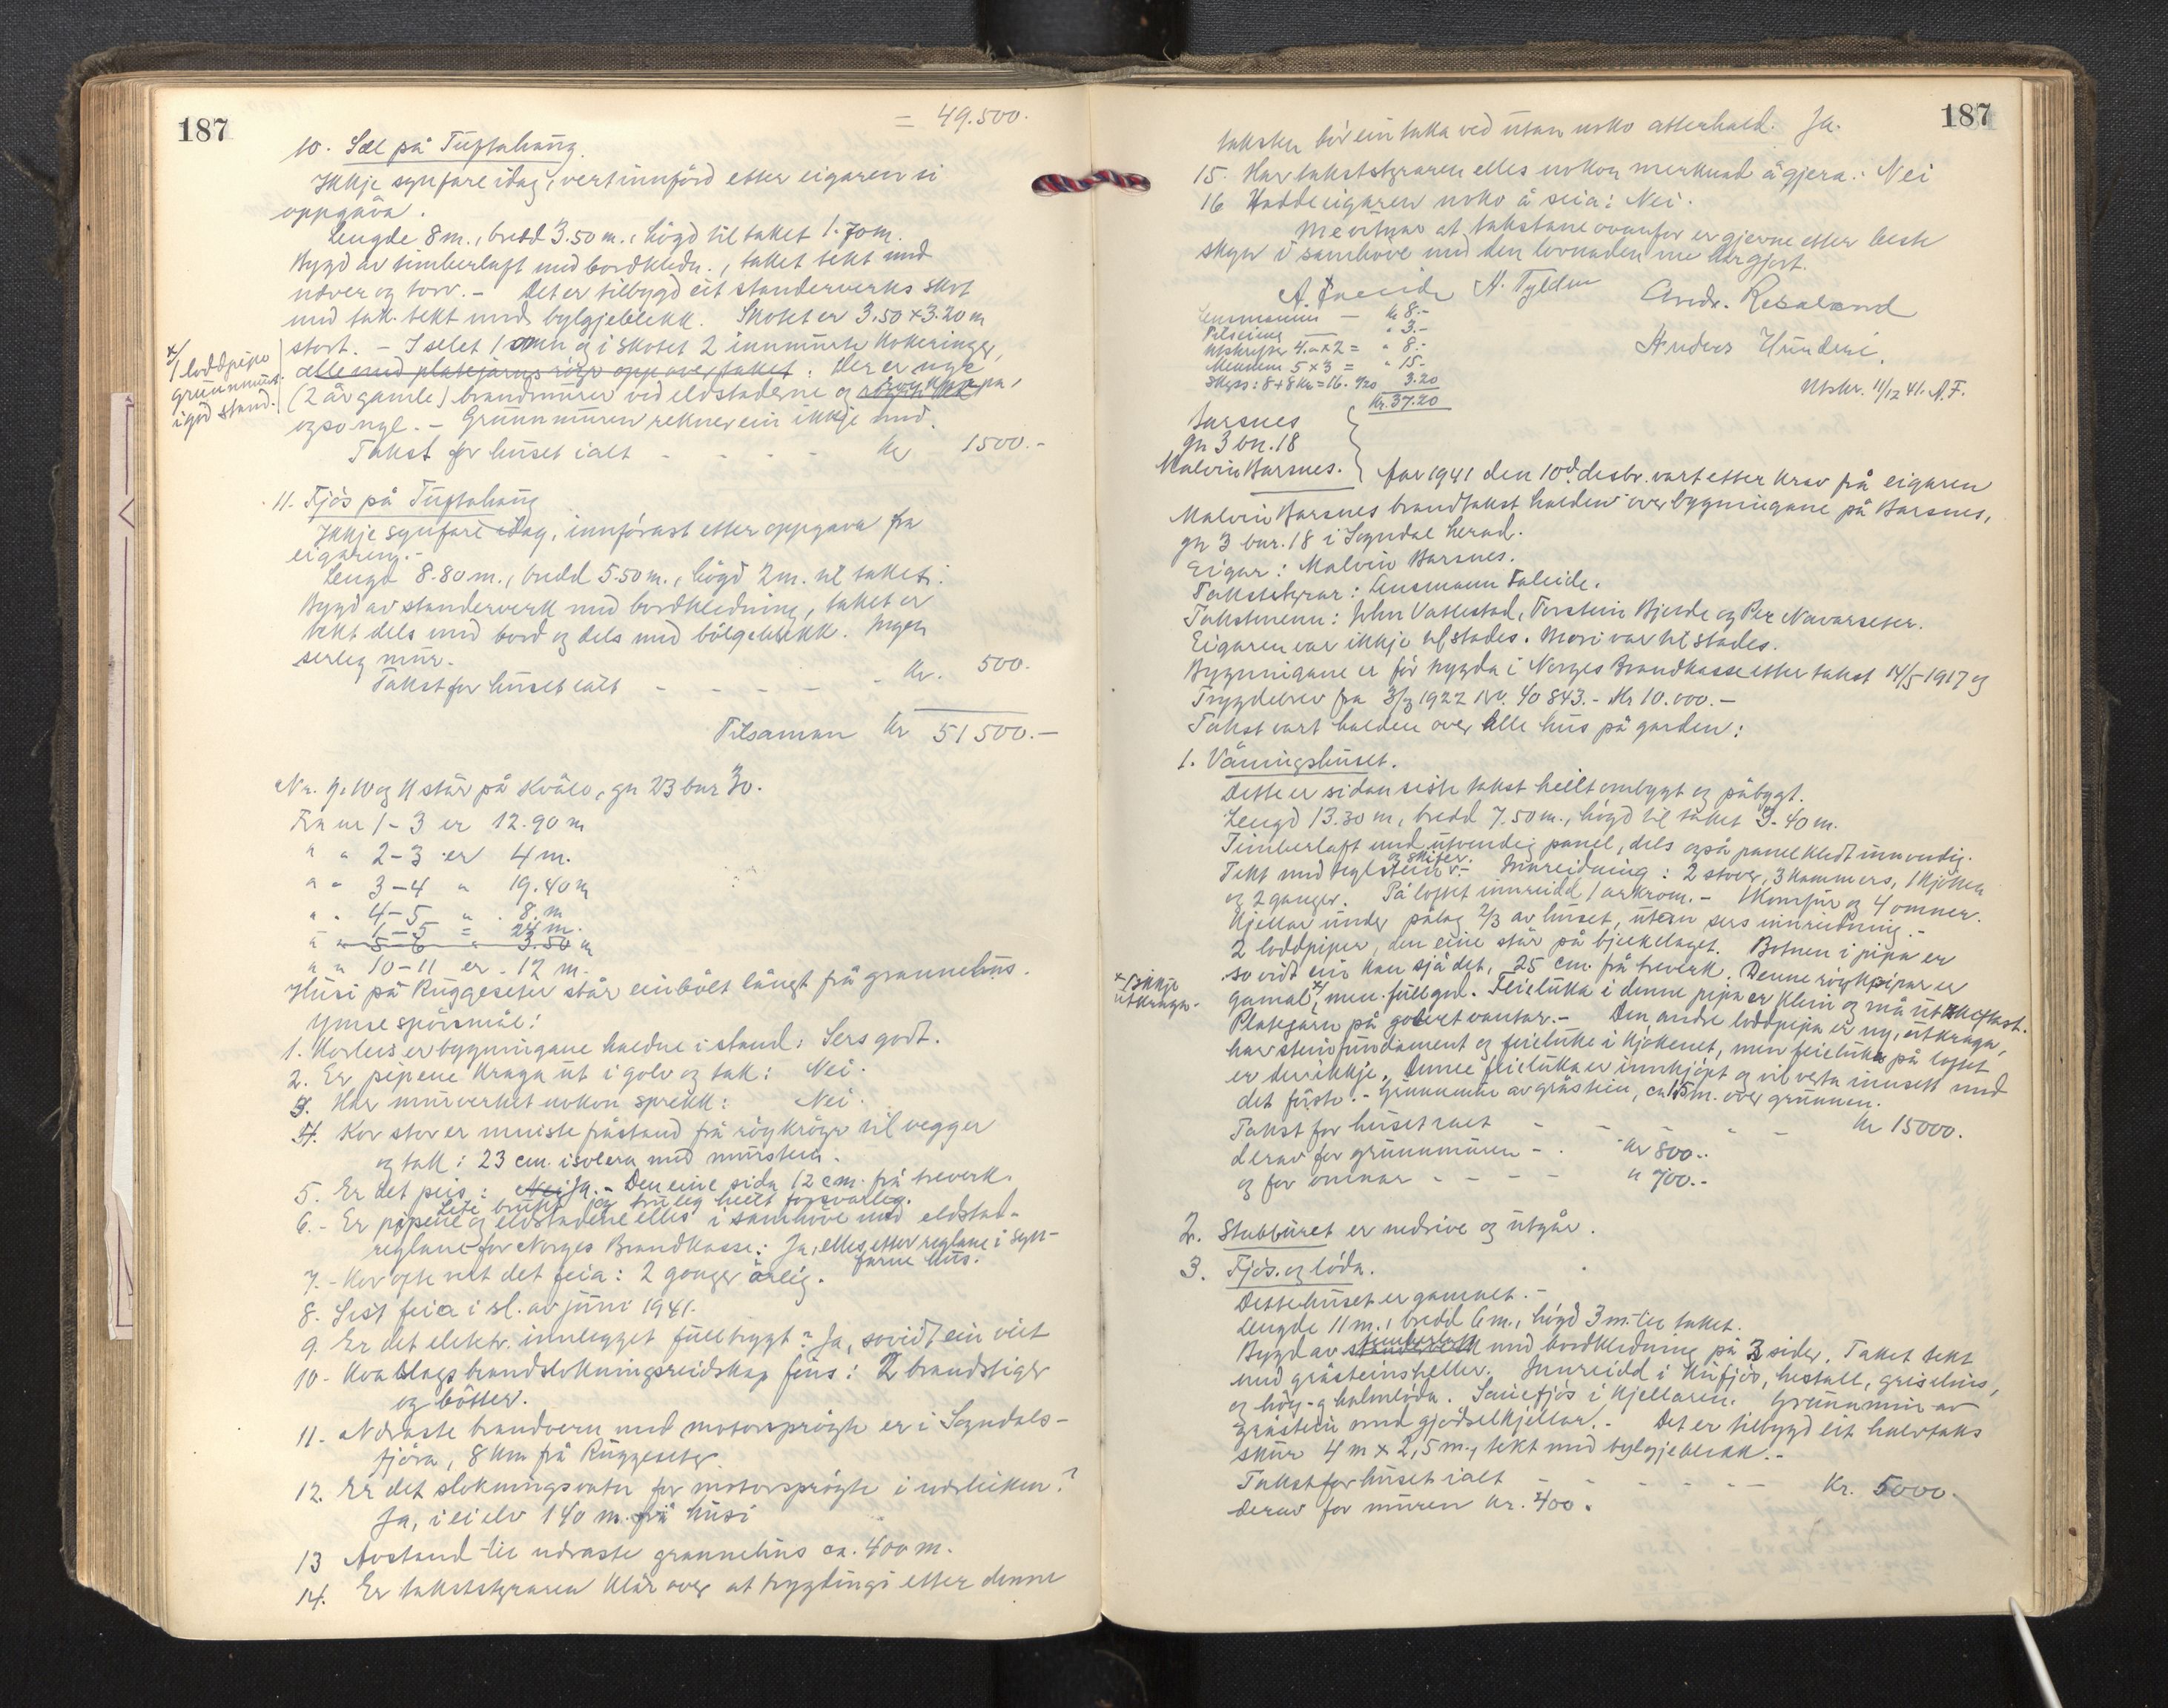 187
= 49.500.
10. Sæl på Tuftahaug.
Ikkje synfare idag, vert innförd etter eigaren si
oppgåva.
Lengde 8 m., bredd 3.50 m., högd til taket 1.70 m.
Bygd av timberlaft med bordkledn., taket tekt med
næver og torv. - Det er tilbygd eit standerverks skot
med tak tekt med bylgjeblekk. Skotet er 3.50 x 3.20 m
stort. - I selet 1 omn og i skotet 2 innmurte kokeringer,
x/ 1 loddpipe
grunnmur.
i god stand.
alle med platejarns rör opp over taket. Her er nye
(2 år gamle) brandmurer ved eldstaderne og
også nye. - Grunnmuren rekner ein ikkje med.
Takst for huset ialt - - - - kr 1500.-
11. Fjös på Tuftahaug
Ikkje synfare idag, innförast etter oppgava fra
eigaren. -
Lengd 8.80 m., bredd 5.50 m., högd 2 m. til taket.
Bygd av standerverk med bordkledning, taket er
tekt dels med bord og dels med bölgeblekk. Ingen
serleg mur.
Takst for huset ialt - - - - - kr. 500.
Tilsaman kr 51500.-
Nr. 9, 10 og 11 står på Kvåle, gn 23 bnr 30.
Frå nr 1-3 er 12.90 m
" " 2-3 er 4 m.
" " 3-4 " 19.40 m
" " 4-5 " 8. m
1-5 = 24 m.
" " 5-6 " 3.50 m
" " 10-11 er 12 m.
Husi på Ruggeseter står einbölt långt frå grannehus.
Ymse spörsmål:
1. Korleis er bygningane haldne i stand: Sers godt.
2. Er pipene kraga ut i golv og tak: Nei.
3. Har murverket nokon sprekk: Nei.
4. Kor stor er minste fråstand frå röykrör til vegger
og tak: 23 cm. isolera med murstein.
5. Er det peis: Nei Ja. - Den eine sida 12 cm. frå treverk.
Lite brukt og truleg heilt forsvarleg.
6. - Er pipene og eldstadene elles i samhöve med eldstad-
reglane for Norges Brandkasse: Ja, elles etter reglane i syn-
farne hus.
7. - Kor ofte vert det feia: 2 gonger årleg.
8. Sist feia i sl. av juni 1941.
9. Er det elektr. innlegget fullt trygt? Ja, so vidt ein veit
10 - Kva slags brandslokningsreidskap fins: 2 brandstiger
og bötter.
11. Næraste brandvern med motorspröyte er i Sogndals-
fjöra, 8 km frå Ruggeseter.
12. Er det slokningsvatn for motorspröyte i nærleiken?
Ja, i ei elv 140 m. frå husi
13 Avstand til næraste grannehus ca. 400 m.
14. Er takststyraren klår over at trygdingi etter denne
187
taksten bör ein taka ved utan noko atterhald. Ja.
15. Har takststyraren elles nokon merknad å gjera: Nei
16 Hadde eigaren noko å seia: Nei.
Me vitnar at takstane ovanfor er gjerne etter beste
skyn i samhöve med den lovnaden me har gjort.
A. Faleide N. Tylden Andr. Rebaland
Anders Hundere.
Lensmann - kr 8.-
- " 3.-
Utskrifter 4.- x 2 = " 8.-
Menner 5 x 3 = " 15.-
Skyss: 8+8 km = 16. á/20 3.20
kr. 37.20
Utskr. 11/12 41. A.F.
Barsnes
gn 3 bn. 18
Malvin Barsnes.
År 1941 den 10d. desbr. vart etter krav frå eigaren
Malvin Barsnes brandtakst halden over bygningane på Barsnes,
gn 3 bnr. 18 i Sogndal herad.
Eigar: Malvin Barsnes.
Takststyrar: Lensmann Faleide.
Takstmenn: John Vatlestad, Torstein Bjelde og Per Navarseter.
Eigaren var ikkje til stades. Mori var til stades.
Bygningane er för trygda i Norges Brandkasse etter takst 14/5-1917 og
Trygdebrev fra 3/3 1922 Nr. 40843. - Kr 10.000.-
Takst vart halden over alle hus på garden:
1. Våningshuset.
Dette er sidan siste takst heilt ombygt og påbygt.
Lengd 13.30 m, bredd 7.50 m., högd til taket 3.40 m.
Timberlaft med utvendig panel, dels også panelkledt innvendig.
Tekt med teglstein og skifer. - Innreidning: 2 stover, 3 kammers, 1 kjöken
og 2 ganger. På loftet innreidd 1 arkrom. - 1 komfur og 4 omner.
Kjellar under pålag 2/3 av huset, utan sers innreidning. -
2 loddpiper, den eine står på bjelkelaget. Botnen i pipa er
so vidt ein kan sjå det, 25 cm. frå treverk. Denne röykpipa er
x Ikkje
utkraga.
gamal x/, men fullgod. Feieluka i denne pipa er klein og må utskiftast.
Platejarn på golvet vantar. - Den andre loddpipa er ny, utkraga,
har steinfundament og feieluke i kjökenet, men feieluka på loftet
er der ikkje. Denne feieluka er innkjöpt og vil verta innsett med
det fyrste. - Grunnmur av gråstein, ca 1.5 m. over grunnen.
Takst for huset ialt - - - - - kr 15000.
derav for grunnmuren - . kr 800.-
og for omnar - - - - " 700.-
2. Stabburet er nedrive og utgår.
3. Fjös og löda.
Dette huset er gamalt. -
Lengde 11 m., bredd 6 m., högd 3 m. til taket.
Bygd av standerverk timberlaft med bordkledning på 3 sider. Taket tekt
med gråsteinsheller. Innreidd i kufjös, hestall, grisehus,
og höy- og halmlöda. Sauefjös i kjellaren. Grunnmur av
gråstein med gjödselkjellar. - Det er tilbygd eit halvtaks
skur 4 m x 2,5 m., tekt med bylgjeblekk. -
Takst for huset ialt - - - - - - kr. 5000.
Derav for muren kr. 400.